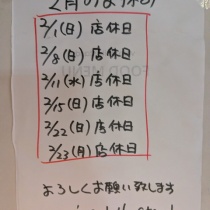 2月のお休み
2/1(日)店休日
2/8(日)店休日
2/11(水)店休日
2/15(日)店休日
2/22(日)店休日
2/23(月)店休日
よろしくお願い致します